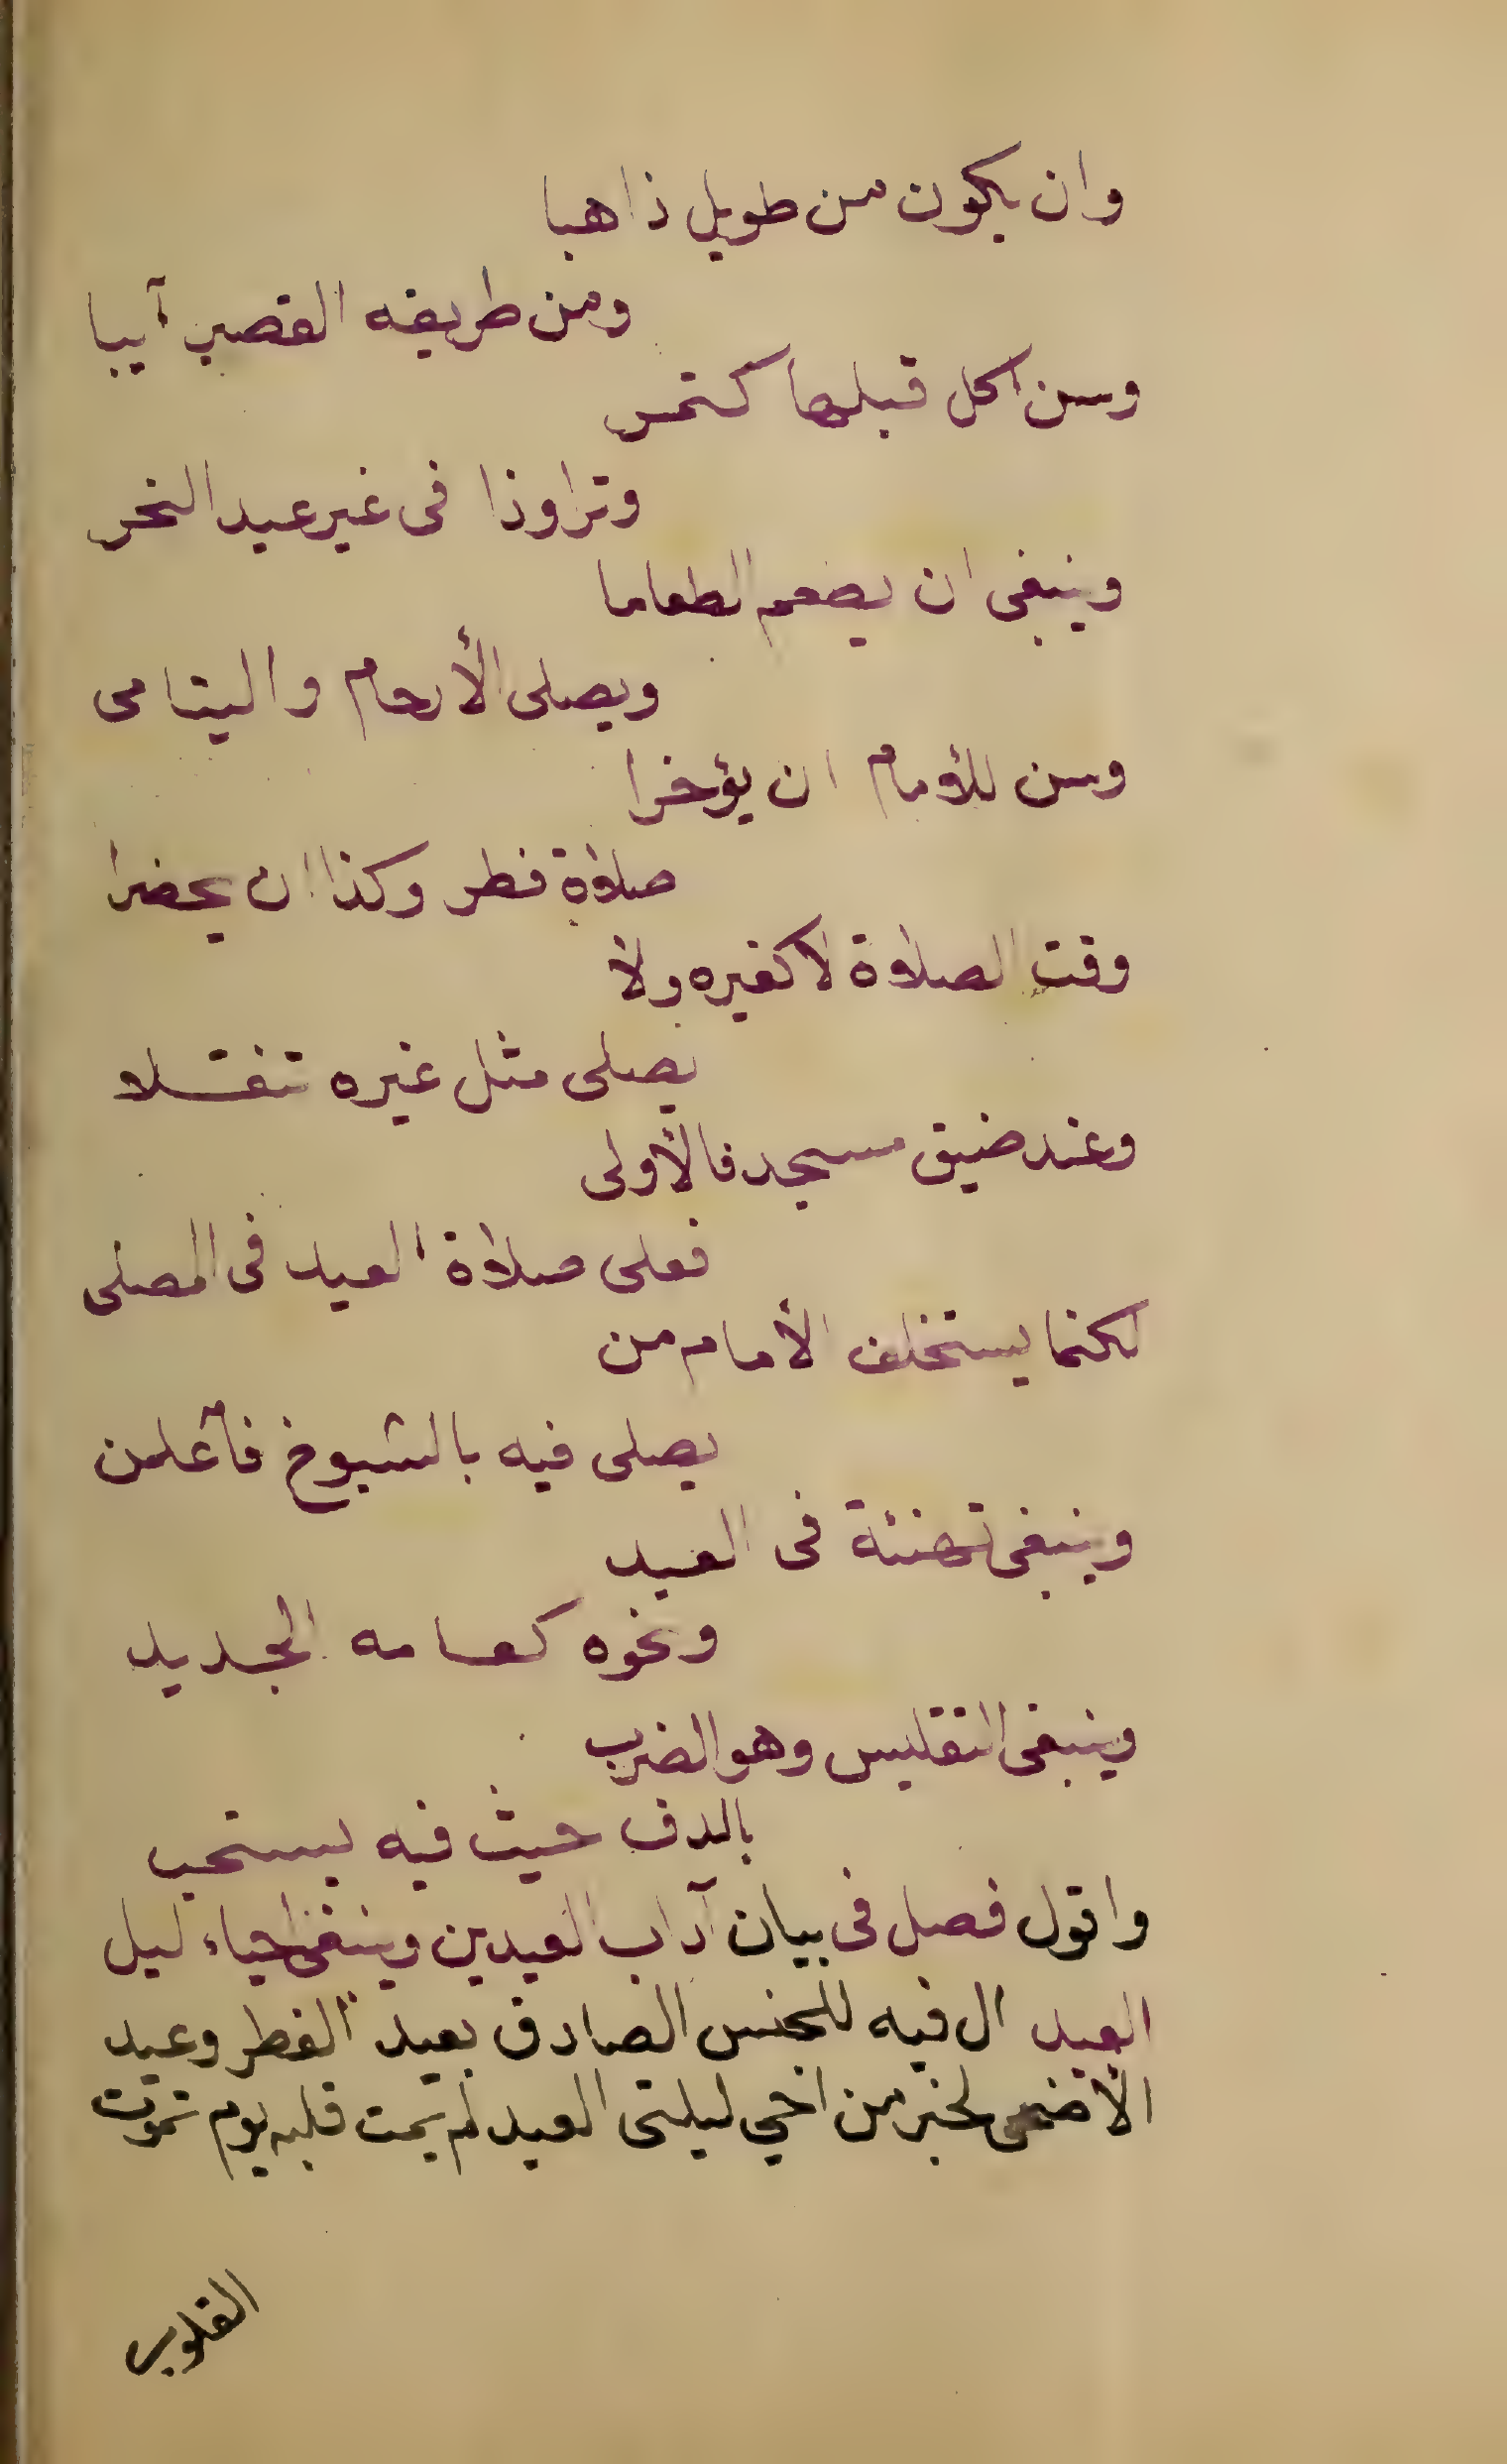 وان يكون من طويل ذاهبا
ومن طريقه القصير آيبا
وسن اكل قبلها كتمر
وترا وذا فى غير عيد النحر
وينبغى ان يصعم الطعاما
ويصلى الأرحام واليتامى
وسن للأمام ان يؤخرا
صلاة فطر وكذا ان يحضرا
وقت الصلاة لا كغيره ولا
يصلى مثل غيره تنفلا
وعند ضيق مسجد فالأولى
فعلى صلاة العيد فى المصلى
لكنما يستخلف الأمام من
يصلى فيه بالشيوخ فأعلمن
وينبغى تهنئة فى العيد
ونحوه كعامه الجديد
وينبغى التقليس وهو الضرب
بالدف حيث فيه يستحب
واقول فصل فى بيان آداب العيدين وينبغى احياء ليل
العيد ال فيه للجنس الصادق بعيد الفطر وعيد
الأضحى لخبر من احي ليلتى العيد لم يمت قلبه يوم تموت
القلوب